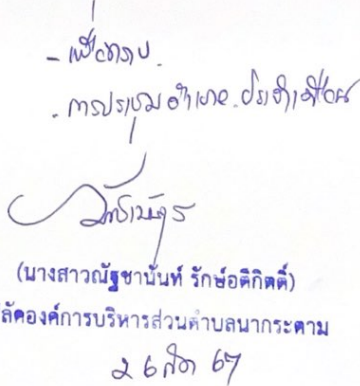 - เพื่อทราบ.
- การประชุมอำเภอ ประจำเดือน
(นางสาวณัฐชานันท์ รักษ์อติกิตติ์)
ลัดองค์การบริหารส่วนตำบลนากระตาม
26 67